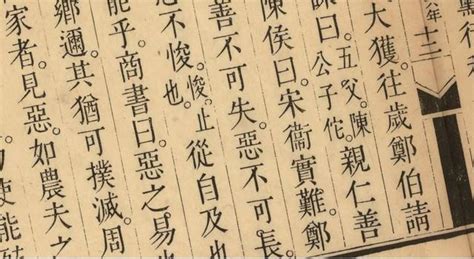 八年 十三
大獲。往歲鄭伯請
曰。五父。陳公子佗。親仁善
陳侯曰。宋衞實難。鄭
善不可失。惡不可長。
不悛。悛。止也。從自及也
能乎。商書曰。惡之易
鄉邇。其猶可撲滅。周
家者。見惡。如農夫之
使能